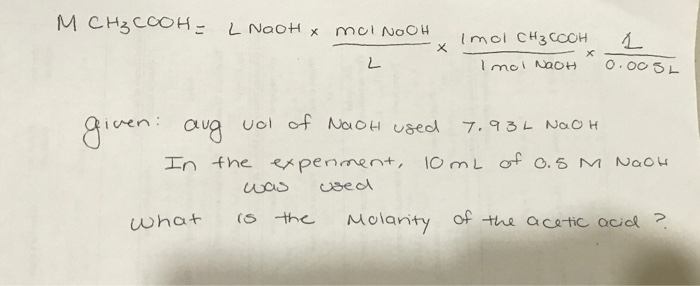 M CH3COOH = L NaOH x mol NaOH / L x 1 mol CH3COOH / 1 mol NaOH x 1 / 0.005L
given: avg vol of NaOH used 7.93 L NaOH
In the experiment, 10 mL of 0.5 M NaOH
was used
what is the Molarity of the acetic acid?